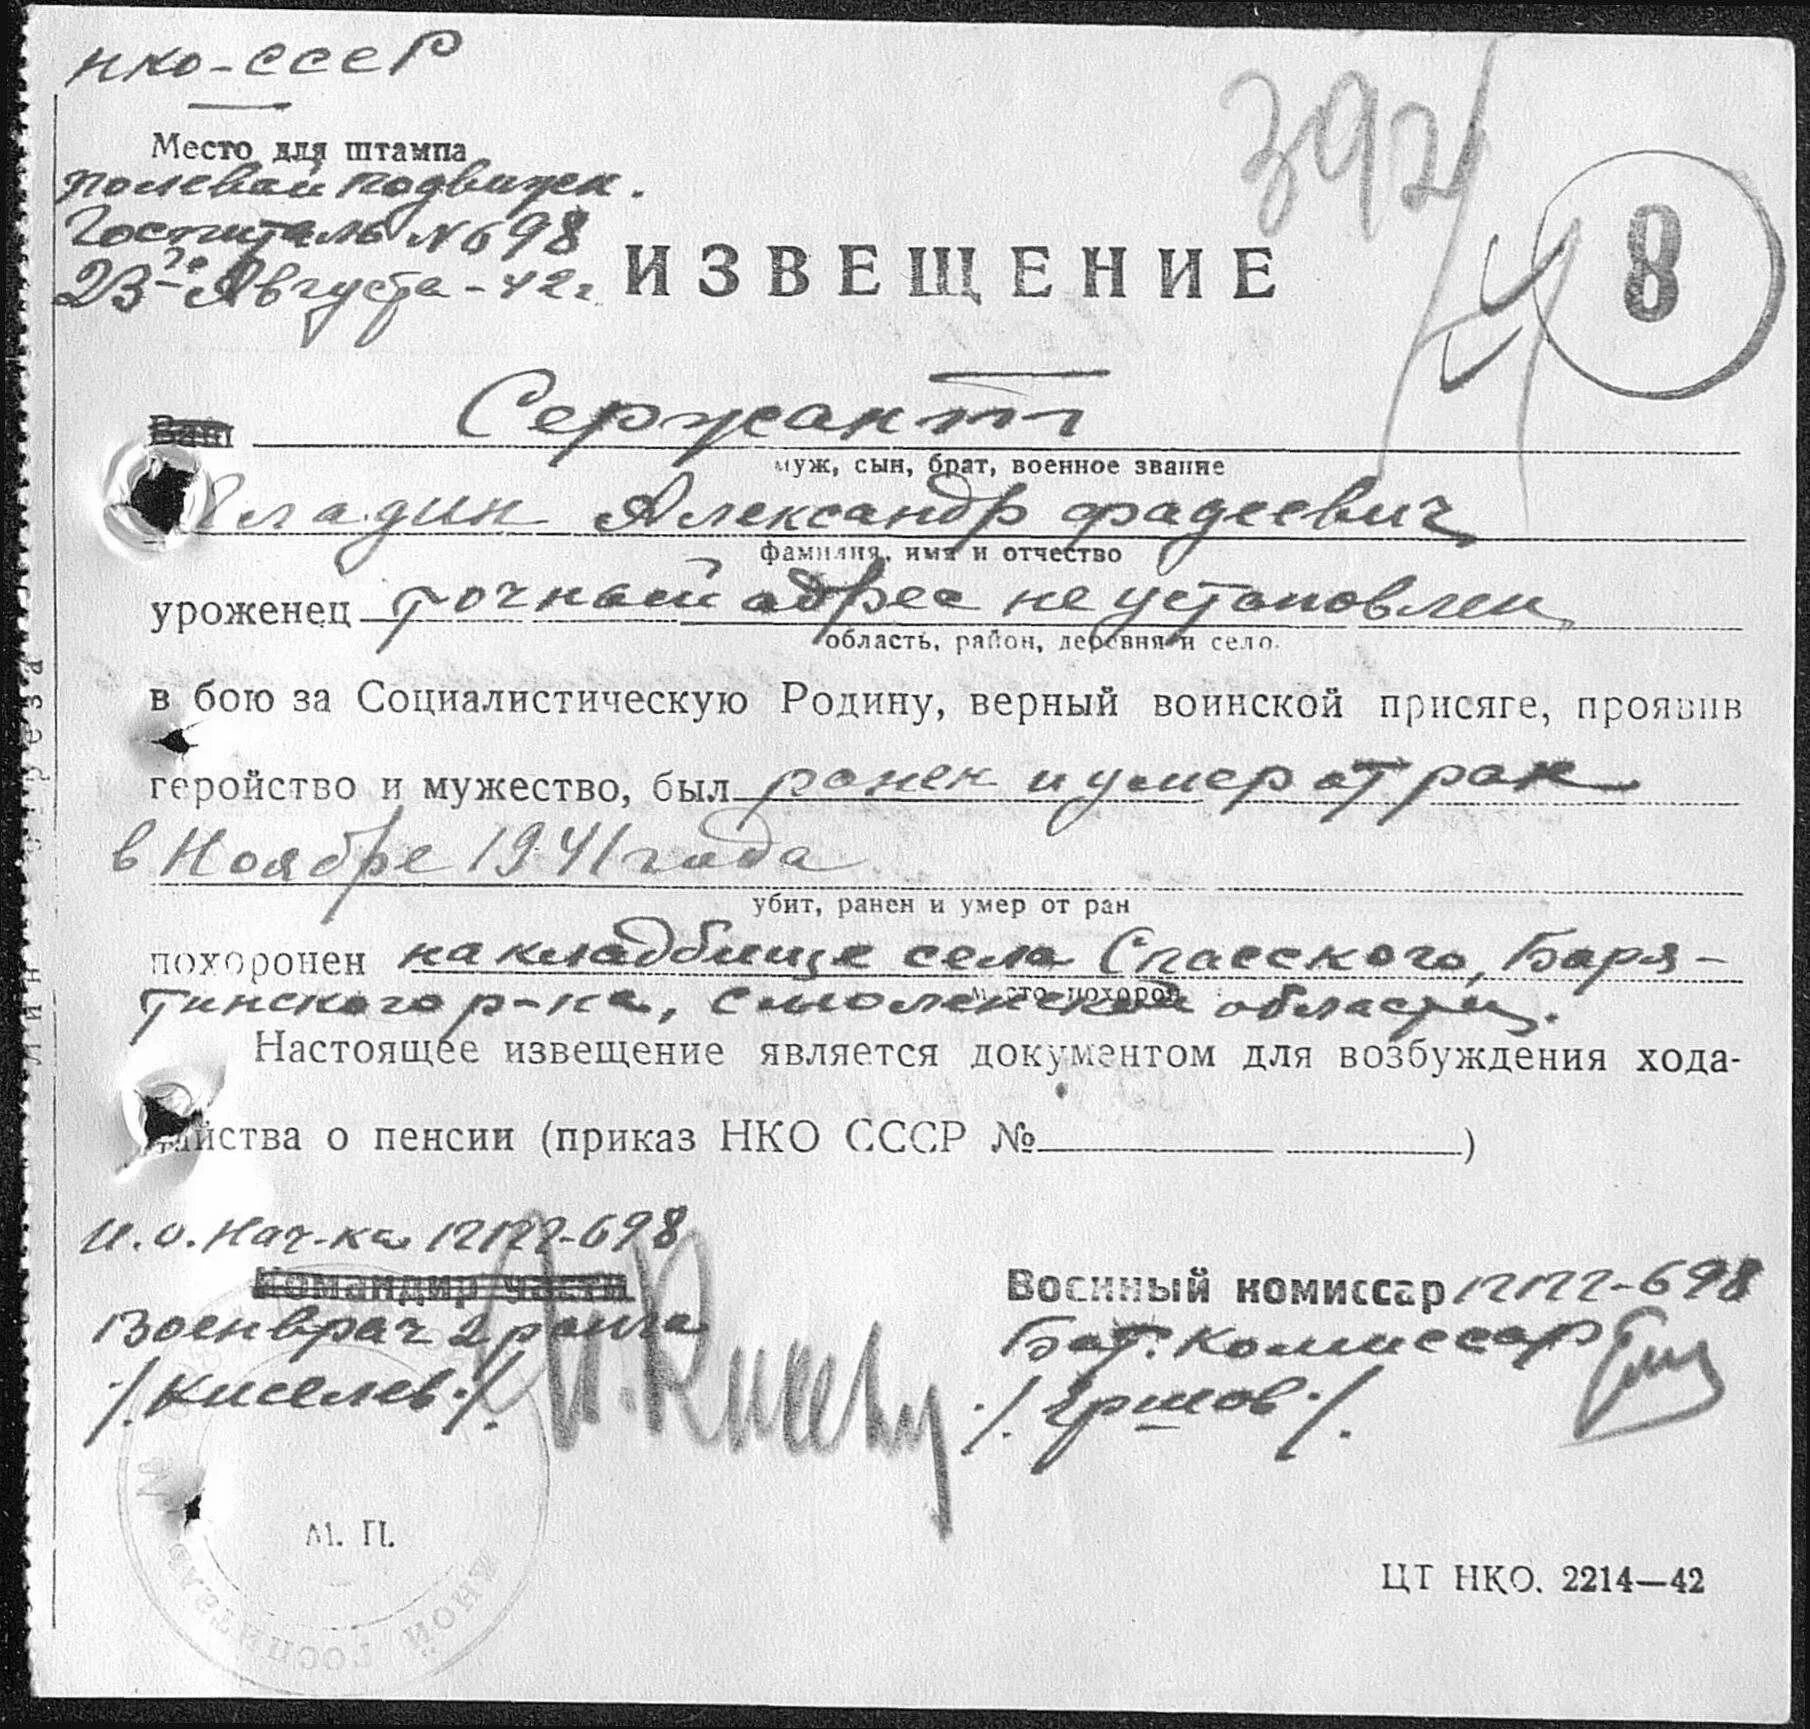 НКО-СССР
Место для штампа
полевой подвижн.
Госпиталь №698
23го Августа - 42г.
392
8
ИЗВЕЩЕНИЕ
Ваш Сержант
муж, сын, брат, военное звание
Александр Фадеевич
фамилия, имя и отчество
уроженец точный адрес не установлен
область, район, деревня и село.
в бою за Социалистическую Родину, верный воинской присяге, проявив
геройство и мужество, был ранен и умер от ран
в Ноябре 1941 года
убит, ранен и умер от ран
похоронен на кладбище села Спасского, Баря-
место похорон
тинского р-на, Смоленской области.
Настоящее извещение является документом для возбуждения хода-
тайства о пенсии (приказ НКО СССР № )
И.о. Нач-ка ППГ-698
Командир части
Военврач 2 ранга
/. Киселев ./
Военный комиссар ППГ-698
Бат. Комиссар
./ Ершов ./
М. П.
ЦТ НКО. 2214—42
линия отреза
ГОСПИТАЛЬ